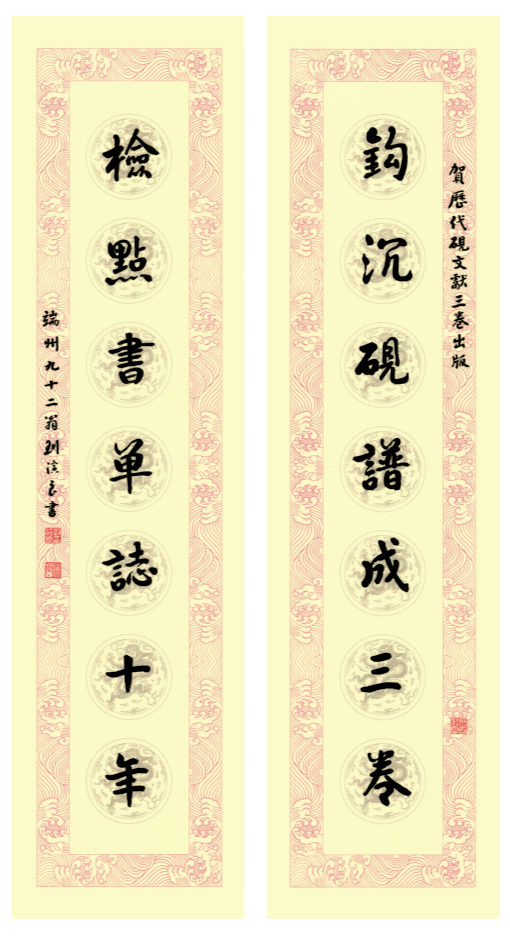 賀歷代硯文獻三卷出版
鈎沉硯譜成三卷
檢點書单誌十年
端州九十二翁劉演良書